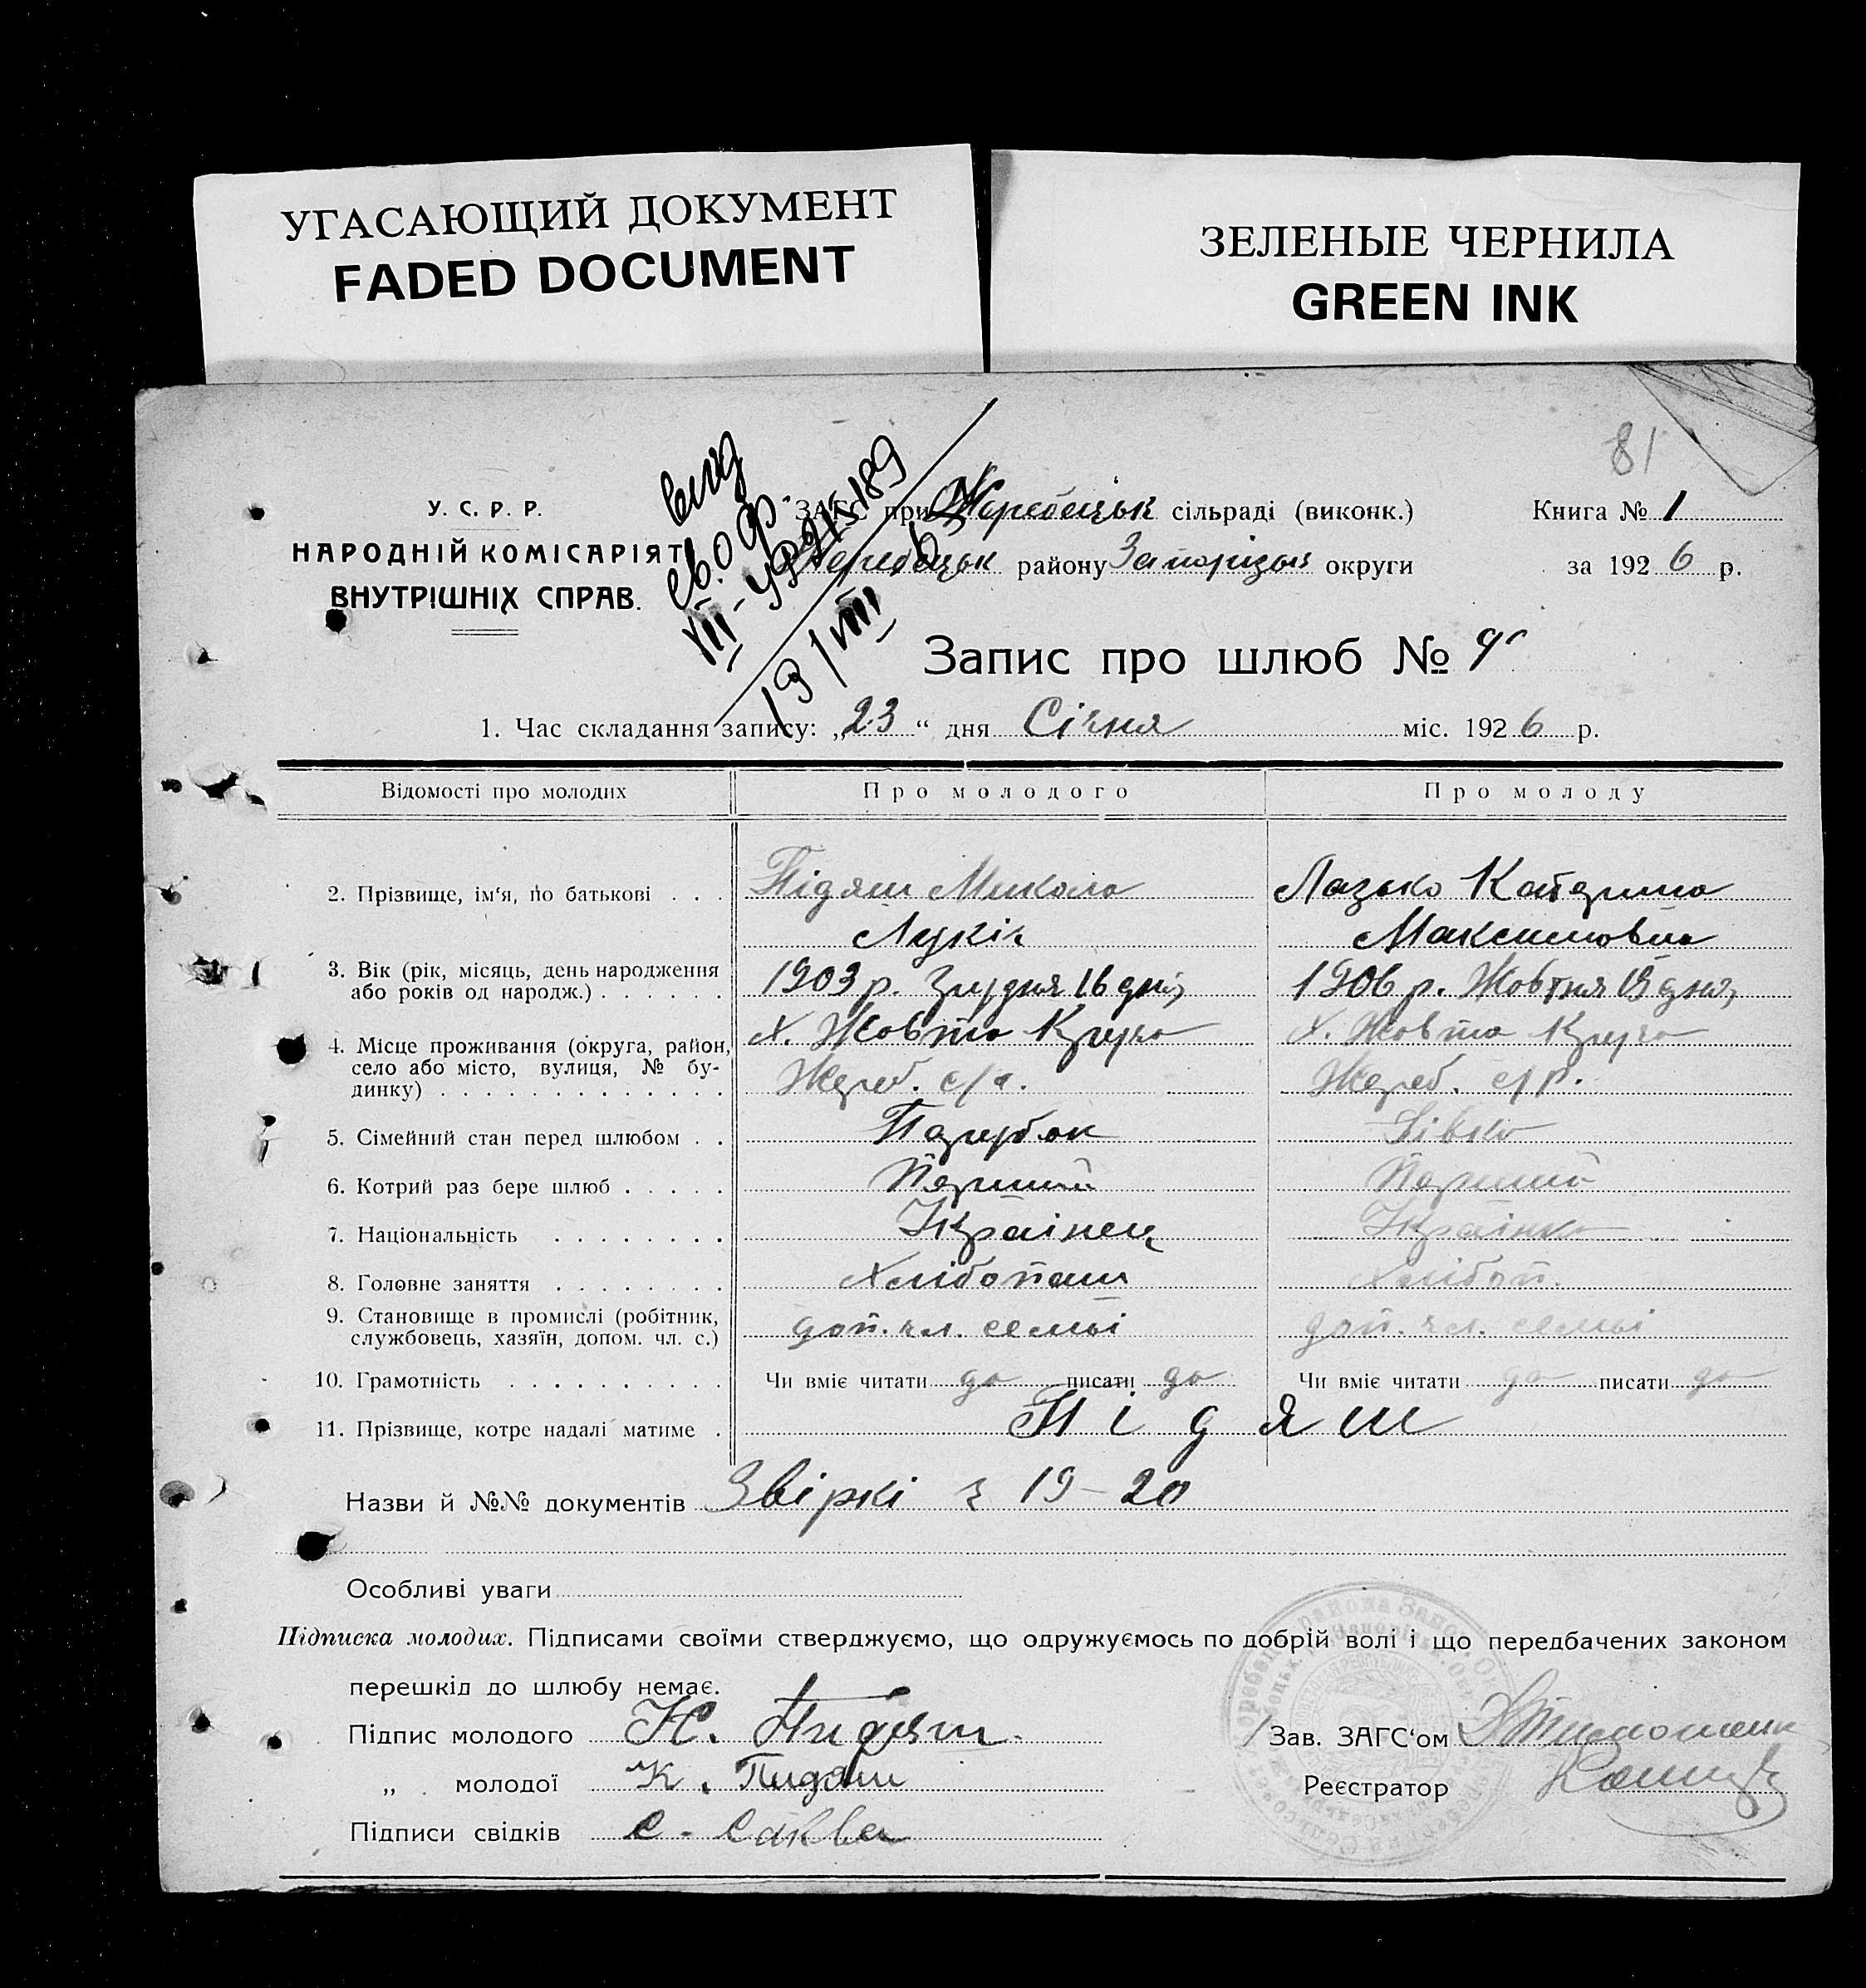 УГАСАЮЩИЙ ДОКУМЕНТ
FADED DOCUMENT
ЗЕЛЕНЫЕ ЧЕРНИЛА
GREEN INK
81
У. С. Р. Р.
НАРОДНІЙ КОМІСАРІЯТ
ВНУТРІШНІХ СПРАВ.
вид
св. о
19/VIII
ЗАГС при Жеребецьк сільраді (виконк.)
Жеребецьк району Запорізьк округи
Книга № 1
за 1926 р.
Запис про шлюб № 9
1. Час складання запису: „23“ дня Січня міс. 1926 р.
Відомості про молодих Про молодого Про молоду
2. Прізвище, ім‘я, по батькові . . . Підяш Микола Лазько Катерина
Лукіч Максимовна
3. Вік (рік, місяць, день народження або років од народж.) . . . . . . 1903 р. Грудня 16 дня 1906 р. Жовтня 19 дня
4. Місце проживання (округа, район, село або місто, вулиця, № будинку) . . . . . . . . . . . . . х. Жовта Круча х. Жовта Круча
Жереб. с/р. Жереб. с/р.
5. Сімейний стан перед шлюбом . . Парубок Дівка
6. Котрий раз бере шлюб . . . . . Перший Перший
7. Національність . . . . . . . . Українец Українка
8. Головне заняття . . . . . . . . Хлібопаш Хлібоп.
9. Становище в промислі (робітник, службовець, хазяїн, допом. чл. с.) доп. чл. семьі доп. чл. семьі
10. Грамотність . . . . . . . . . . Чи вміє читати да писати да Чи вміє читати да писати да
11. Прізвище, котре надалі матиме . Підяш
Назви й №№ документів Звіркі № 19-20
Особливі уваги
Підписка молодих. Підписами своїми стверджуємо, що одружуємось по добрій волі і що передбачених законом
перешкід до шлюбу немає.
Підпис молодого Н. Пидяш
„ молодої К. Пидяш
Підписи свідків С. Саква
Зав. ЗАГС‘ом
Реєстратор